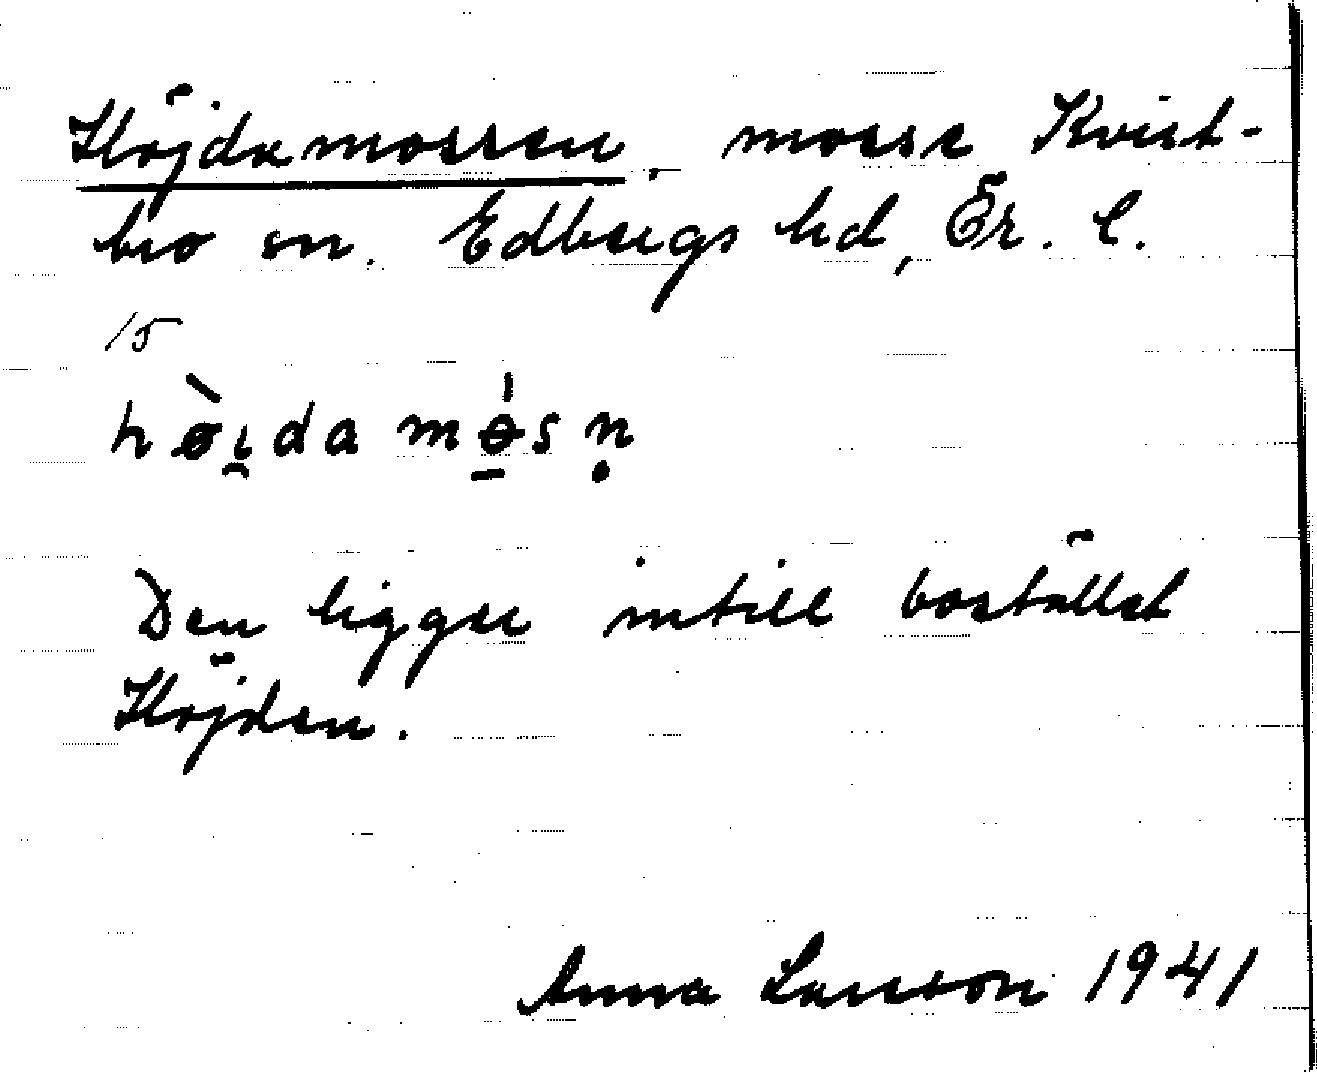 Höjdamossen, mosse Kvist-
bro sn. Edbergs hd, Ör. l.
15
hø̀i̯da mɵ́sṇ
Den ligger intill bostället
Höjden.
Anna Larsson 1941